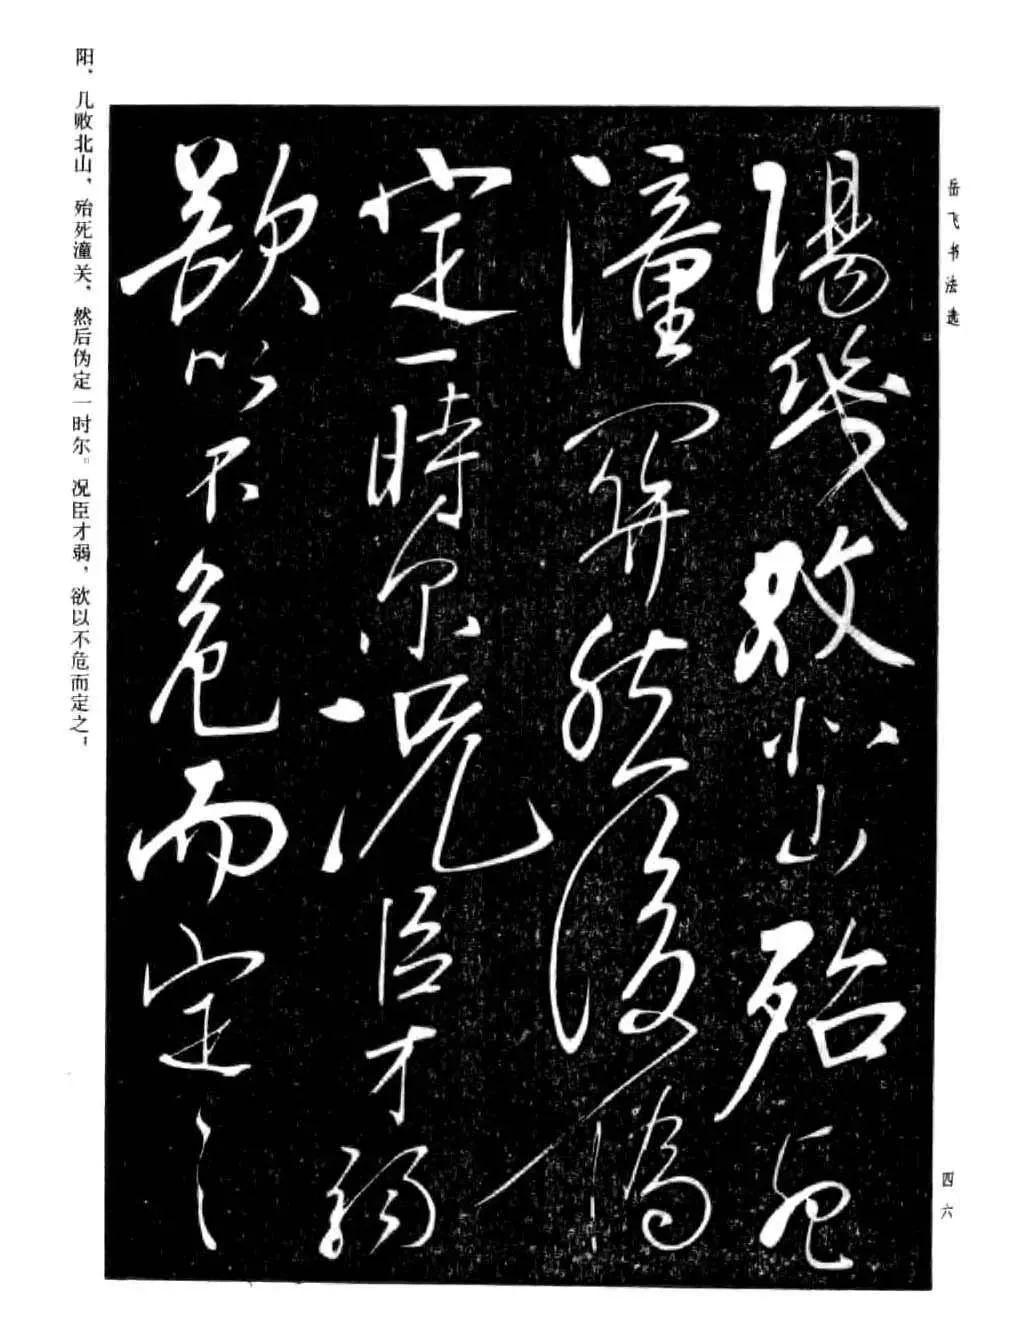 岳飞书法选
陽幾敗北山殆死
潼關然後偽
定一時尔况臣才弱
欲以不危而定之
阳、几败北山、殆死潼关、然后伪定一时尔。况臣才弱，欲以不危而定之；
四六